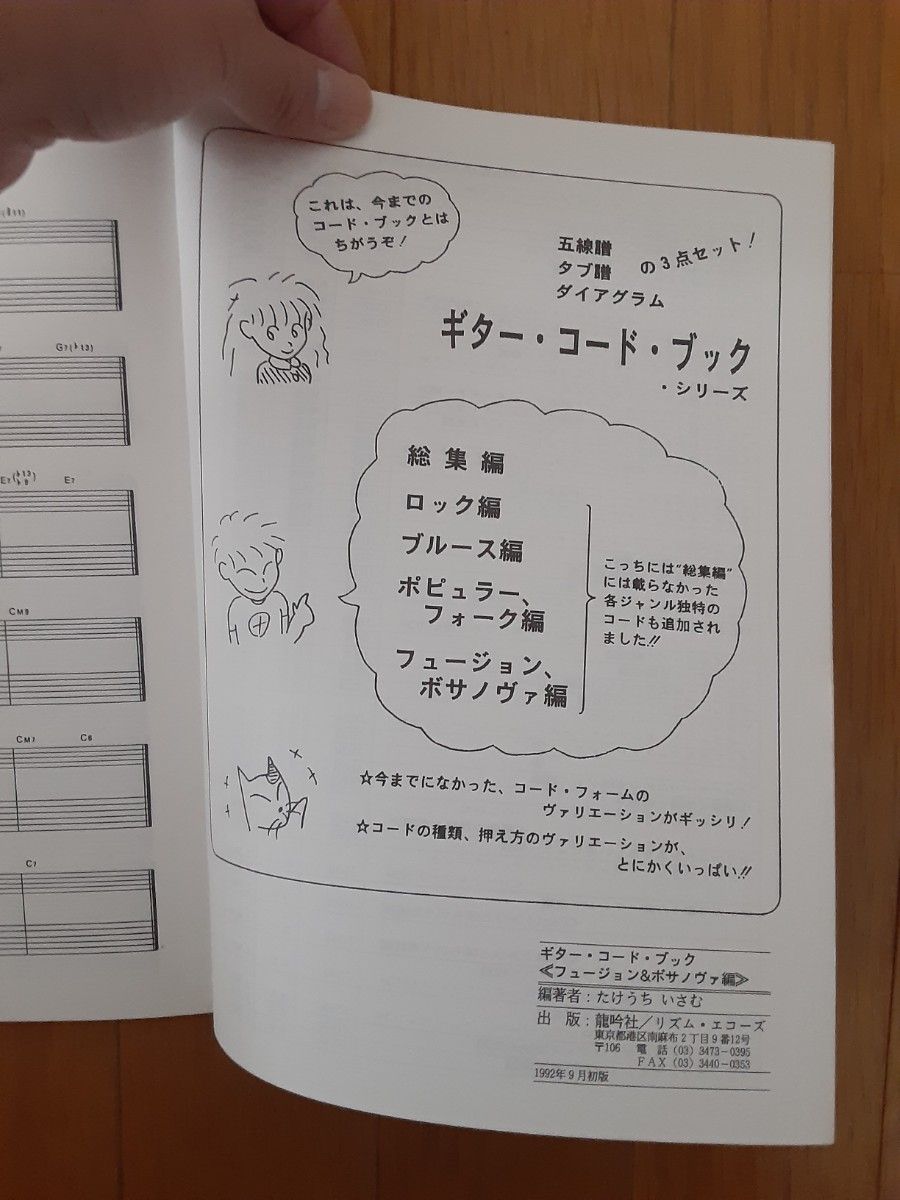 (♯11)
G7(♭13)
E7(♭13 ♭9) E7
CM9
CM7 C6
C7
これは、今までの
コード・ブックとは
ちがうぞ!
五線譜
タブ譜
ダイアグラム
の3点セット!
ギター・コード・ブック
・シリーズ
総集編
ロック編
ブルース編
ポピュラー、
フォーク編
フュージョン、
ボサノヴァ編
こっちには“総集編”
には載らなかった
各ジャンル独特の
コードも追加され
ました!!
☆今までになかった、コード・フォームの
ヴァリエーションがギッシリ!
☆コードの種類、押え方のヴァリエーションが、
とにかくいっぱい!!
ギター・コード・ブック
≪フュージョン&ボサノヴァ編≫
編著者:たけうち いさむ
出 版:龍吟社/リズム・エコーズ
東京都港区南麻布2丁目9番12号
〒106 電 話 (03) 3473-0395
FAX (03) 3440-0353
1992年9月初版